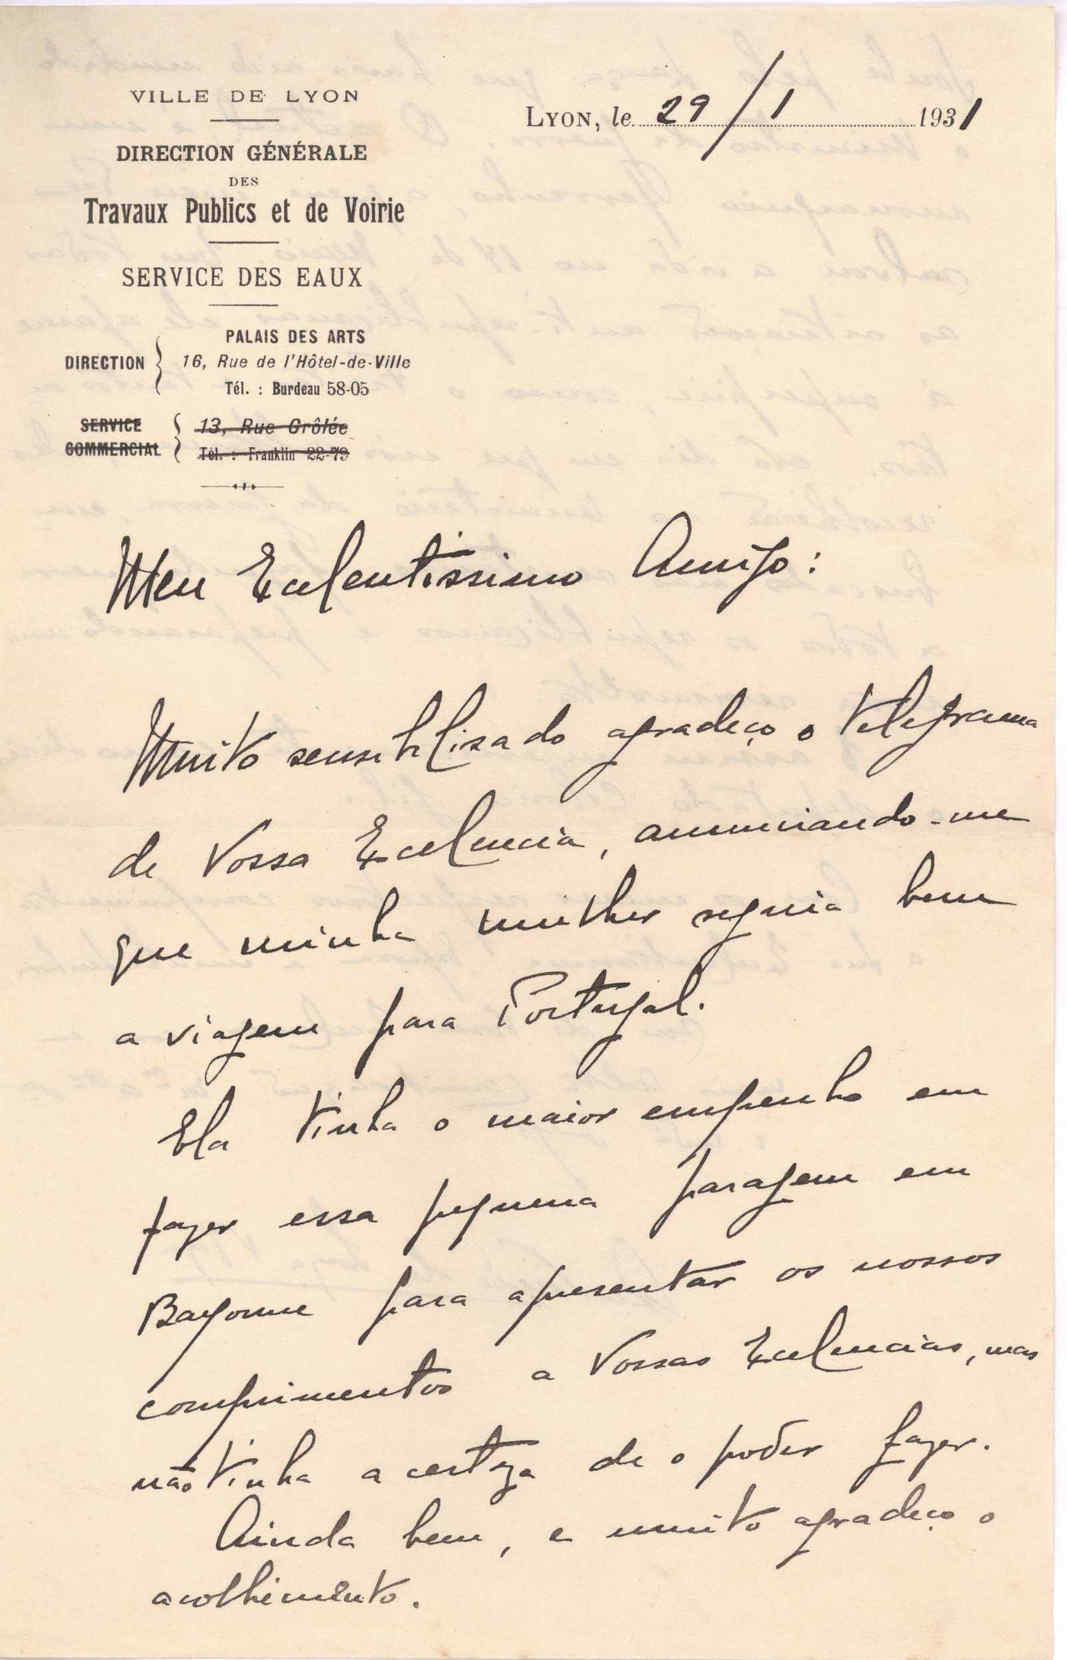 VILLE DE LYON
DIRECTION GÉNÉRALE
DES
Travaux Publics et de Voirie
SERVICE DES EAUX
DIRECTION
PALAIS DES ARTS
16, Rue de l'Hôtel-de-Ville
Tél. : Burdeau 58-05
SERVICE COMMERCIAL
13, Rue Grôlée
Tél. : Franklin 22-79
LYON, le 29/1 1931
Meu Excelentissimo Amigo :
Muito sensibilisado agradeço o telegrama
de Vossa Excelencia, anunciando-me
que minha mulher seguia bem
a viagem para Portugal.
Ela tinha o maior empenho em
fazer essa pequena paragem em
Bayonne para apresentar os nossos
comprimentos a Vossas Excelencias, mas
não tinha a certeza de o poder fazer.
Ainda bem, e muito agradeço o
acolhimento.